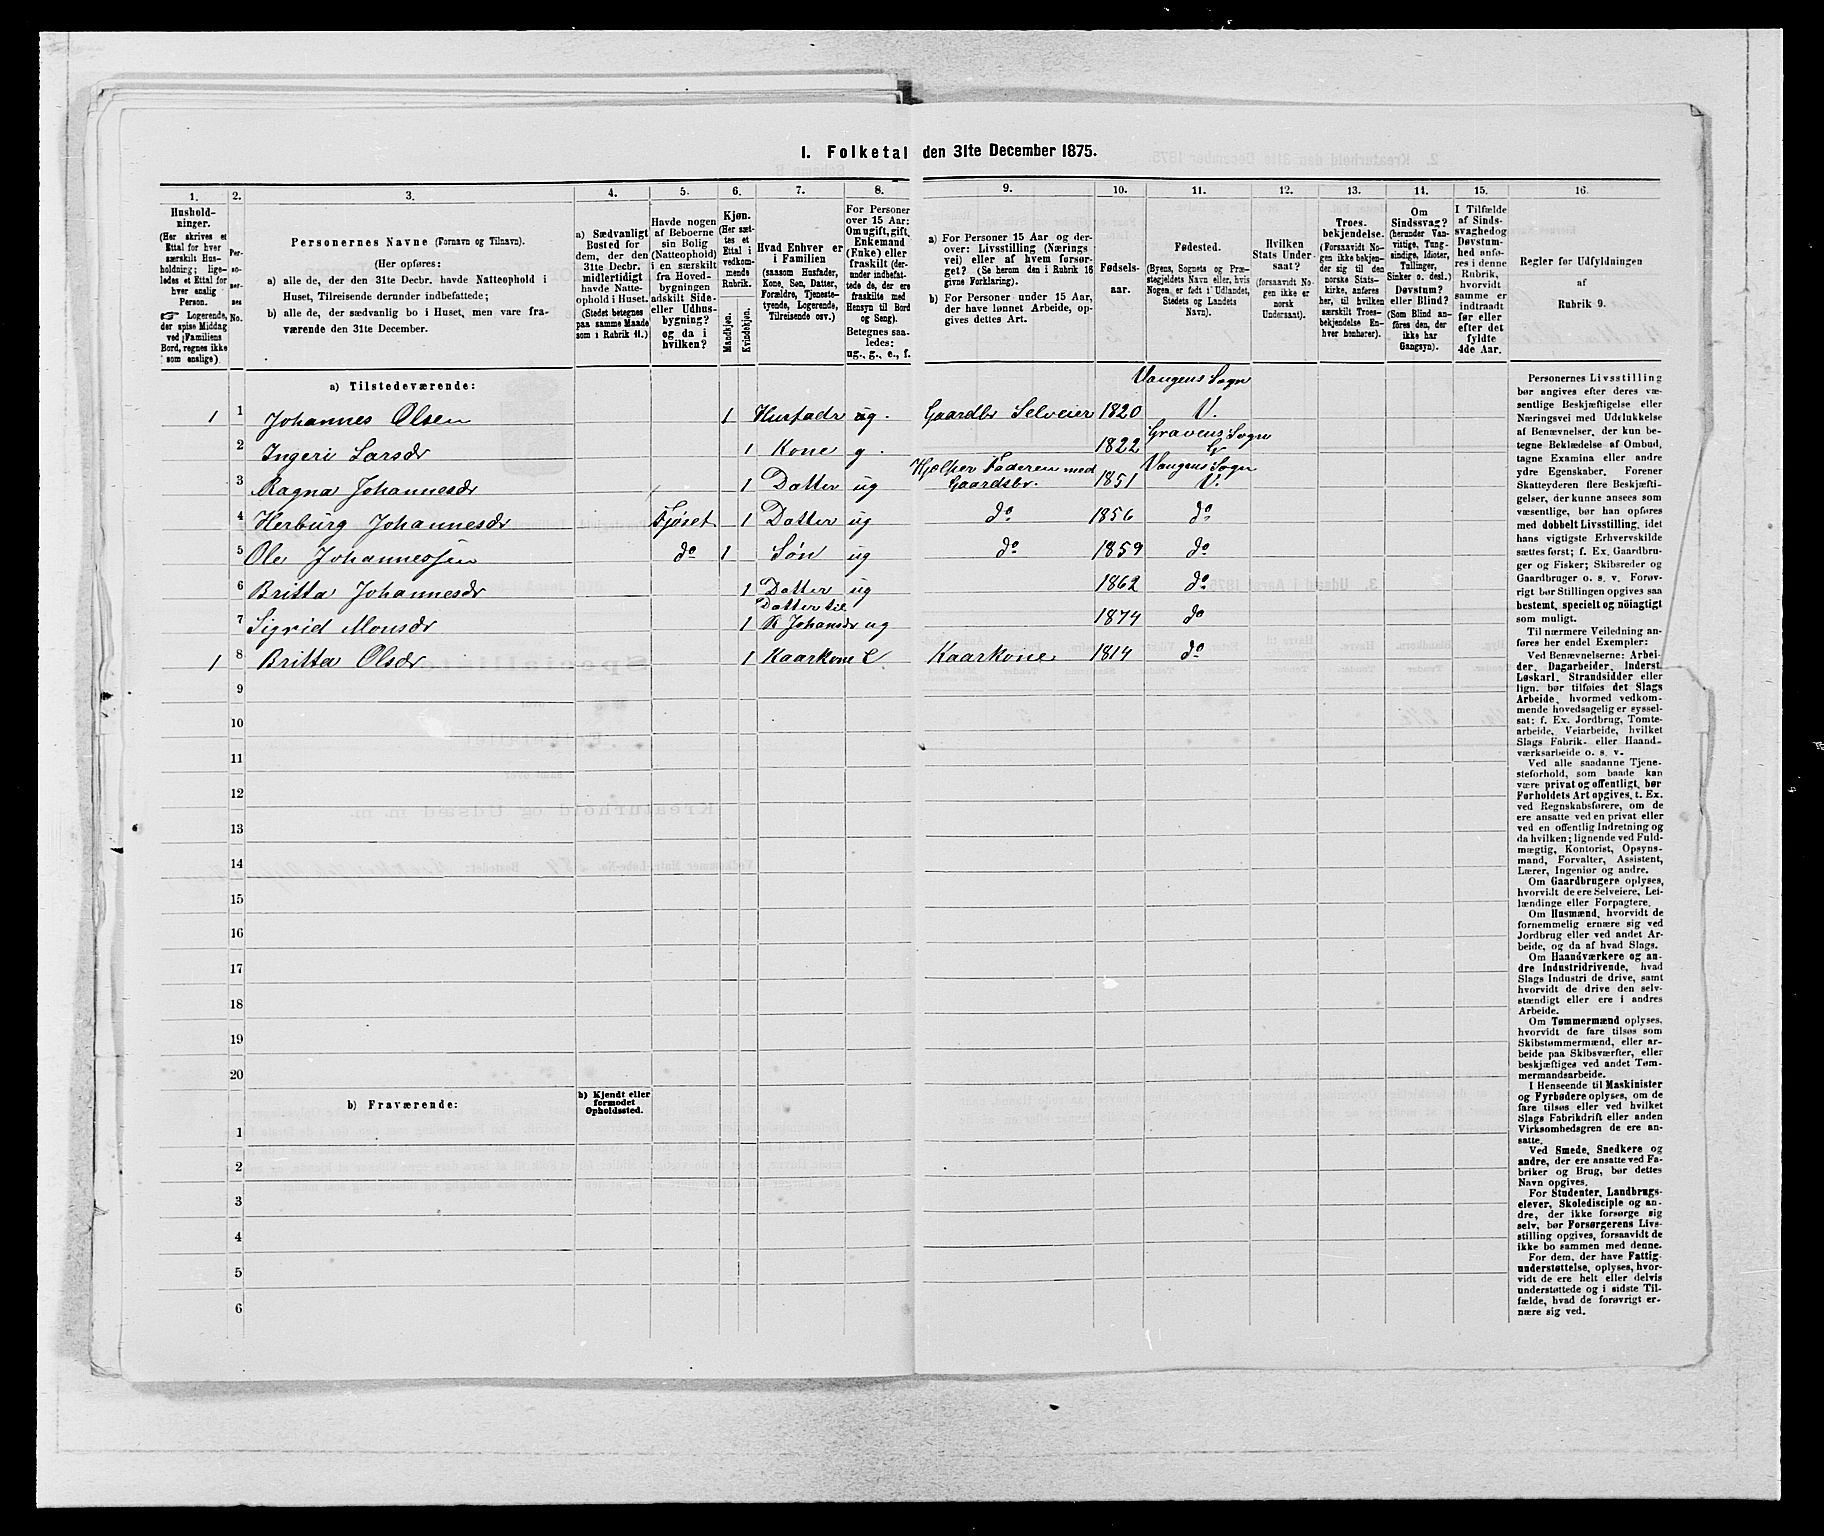 I. Folketal den 31te December 1875.
1. 2. 3. 4. 5. 6. 7. 8. 9. 10. 11. 12. 13. 14. 15. 16.
Hushold-
ninger.
(Her skrives et
Ettal for hver
særskilt Hus-
holdning; lige-
ledes et Ettal for
hver enslig
Person.
☞ Logerende,
der spise Middag
ved Familiens
Bord, regnes ikke
som enslige).
Per-
so-
ner-
nes
No.
Personernes Navne (Fornavn og Tilnavn).
(Her opføres:
a) alle de, der den 31te Decbr. havde Natteophold i
Huset, Tilreisende derunder indbefattede;
b) alle de, der sædvanlig bo i Huset, men vare fra-
værende den 31te December.
a) Sædvanligt
Bosted for
dem, der den
31te Decbr.
midlertidigt
havde Natte-
ophold i Huset.
(Stedet betegnes
paa samme Maade
som i Rubrik 11.)
Havde nogen
af Beboerne
sin Bolig
(Natteophold)
i en særskilt
fra Hoved-
bygningen
adskilt Side-
eller Udhus-
bygning?
og da i
hvilken?
Kjøn.
(Her sæt-
tes et
Ettal i
vedkom-
mende
Rubrik.
Mandkjøn.
Kvindekjøn.
Hvad Enhver er
i Familien
(saasom Husfader,
Kone, Søn, Datter,
Forældre, Tjeneste-
tyende, Logerende,
Tilreisende osv.)
For Personer
over 15 Aar:
Om ugift, gift,
Enkemand
(Enke) eller
fraskilt (der-
under indbefat-
tede de, der ere
fraskilte med
Hensyn til Bord
og Seng).
Betegnes saa-
ledes:
ug., g., e., f.
a) For Personer 15 Aar og der-
over: Livsstilling (Nærings
vei) eller af hvem forsør-
get? (Se herom den i Rubrik 16
givne Forklaring).
b) For Personer under 15 Aar,
der have lønnet Arbeide, op-
gives dettes Art.
Fødsels-
aar.
Fødested.
(Byens, Sognets og Præ-
stegjeldets Navn eller, hvis
Nogen er født i Udlandet,
Stedets og Landets
Navn).
Hvilken
Stats Under-
saat?
(forsaavidt No-
gen ikke er
norsk
Undersaat).
Troes-
bekjendelse.
(Forsaavidt No-
gen ikke bekjen-
der sig til den
norske Stats-
kirke, anføres
her, til hvilken
særskilt Troes-
bekjendelse En-
hver henhører).
Om
Sindssvag?
(herunder Van-
vittige, Tung-
sindige, Idioter,
Tullinger,
Sinker o. desl.)
Døvstum?
eller Blind?
(Som Blind an-
føres den, der
ikke har
Gangsyn).
I Tilfælde
af Sinds-
svaghed og
Døvstum-
hed anfø-
res i denne
Rubrik,
hvorvidt
samme er
indtraadt
før eller
efter det
fyldte
4de Aar.
Regler for Udfyldningen
af
Rubrik 9.
a) Tilstedeværende:
Vangens Sogn
1 1 Johannes Olsen 1 Husfader ug. Gaardbr Selveier 1820 V.
Gravens Sogn
2 Ingeri Larsdr 1 Kone g. 1822 G
Hjelper Faderen med Vangens Sogn
3 Ragna Johannesdr 1 Datter ug Gaardsbr. 1851 V.
4 Herburg Johannesdr Fjöset 1 Datter ug do 1856 do
5 Ole Johannessen do 1 Søn ug do 1859 do
6 Britta Johannesdr 1 Datter ug 1862 do
Datter til
7 Sigrid Monsdr 1 R Johansdr ug 1874 do
1 8 Britta Olsdr 1 Kaarkone E Kaarkone 1814 do
9
10
11
12
13
14
15
16
17
18
19
20
b) Fraværende:
b) Kjendt eller
formodet
Opholdssted.
1
2
3
4
5
6
Personernes Livsstilling
bør angives efter deres væ-
sentlige Beskjæftigelse eller
Næringsvei med Udelukkelse
af Benævnelser, der kun be-
tegne Beklædelse af Ombud,
tagne Examina eller andre
ydre Egenskaber. Forener
Skatteyderen flere Beskjæfti-
gelser, der kunne ansees som
væsentlige, bør han opføres
med dobbelt Livsstilling, idet
hans vigtigste Erhvervskilde
sættes først; f. Ex. Gaardbru-
ger og Fisker; Skibsreder og
Gaardbruger o. s. v. Forøv-
rigt bør Stillingen opgives saa
bestemt, specielt og nöiagtigt
som muligt.
Til nærmere Veiledning an-
føres her endel Exempler:
Ved Benævnelserne: Arbei-
der, Dagarbeider, Inderst,
Løskarl, Strandsidder eller
lign. bør tilføies det Slags
Arbeide, hvormed vedkom-
mende hovedsagelig er syssel-
sat; f. Ex. Jordbrug, Tomte-
arbeide, Veiarbeide, hvilket
Slags Fabrik- eller Haand-
værksarbeide o. s. v.
Ved alle saadanne Tjene-
steforhold, som baade kan
være privat og offentligt, bør
Forholdets Art opgives, t. Ex.
ved Regnskabsførere, om de
ere ansatte ved en privat eller
ved en offentlig Indretning og
da hvilken; lignende ved Fuld-
mægtig, Kontorist, Opsyns-
mand, Forvalter, Assistent,
Lærer, Ingeniør og andre.
Om Gaardbrugere oplyses,
hvorvidt de ere Selveiere, Lei-
lændinge eller Forpagtere.
Om Husmænd, hvorvidt de
fornemmelig ernære sig ved
Jordbrug eller ved andet Ar-
beide, og da af hvad Slags.
Om Haandværkere og an-
dre Industridrivende, hvad
Slags Industri de drive, samt
hvorvidt de drive den selv-
stændigt eller ere i andres
Arbeide.
Om Tømmermænd oplyses,
hvorvidt de fare tilsøs som
Skibstømmermænd, eller ar-
beide paa Skibsværfter, eller
beskjæftiges ved andet Tøm-
mermandsarbeide.
I Henseende til Maskinister
og Fyrbødere oplyses, om de
fare tilsøs eller ved hvilket
Slags Fabrikdrift eller anden
Virksomhedsgren de ere an-
satte.
Ved Smede, Snedkere og
andre, der ere ansatte ved Fa-
briker og Brug, bør dettes
Navn opgives.
For Studenter, Landbrugs-
elever, Skoledisciple og an-
dre, der ikke forsørge sig
selv, bør Forsørgerens Livs-
stilling opgives, forsaavidt de
ikke bo sammen med denne.
For dem, der have Fattig-
understøttelse, oplyses, hvor-
vidt de ere helt eller delvis
understøttede og i sidste Til-
fælde, hvad de forøvrigt er-
nære sig ved.